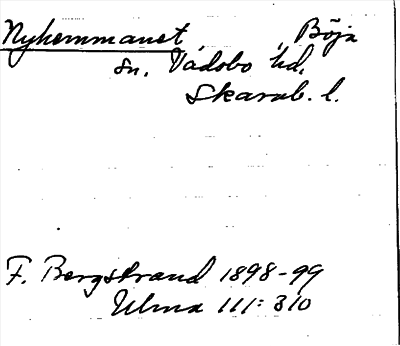 Nyhemmanet Böja
sn, Vadsbo hd,
Skarab. l.
F. Bergstrand 1898-99
Ulma 111:310